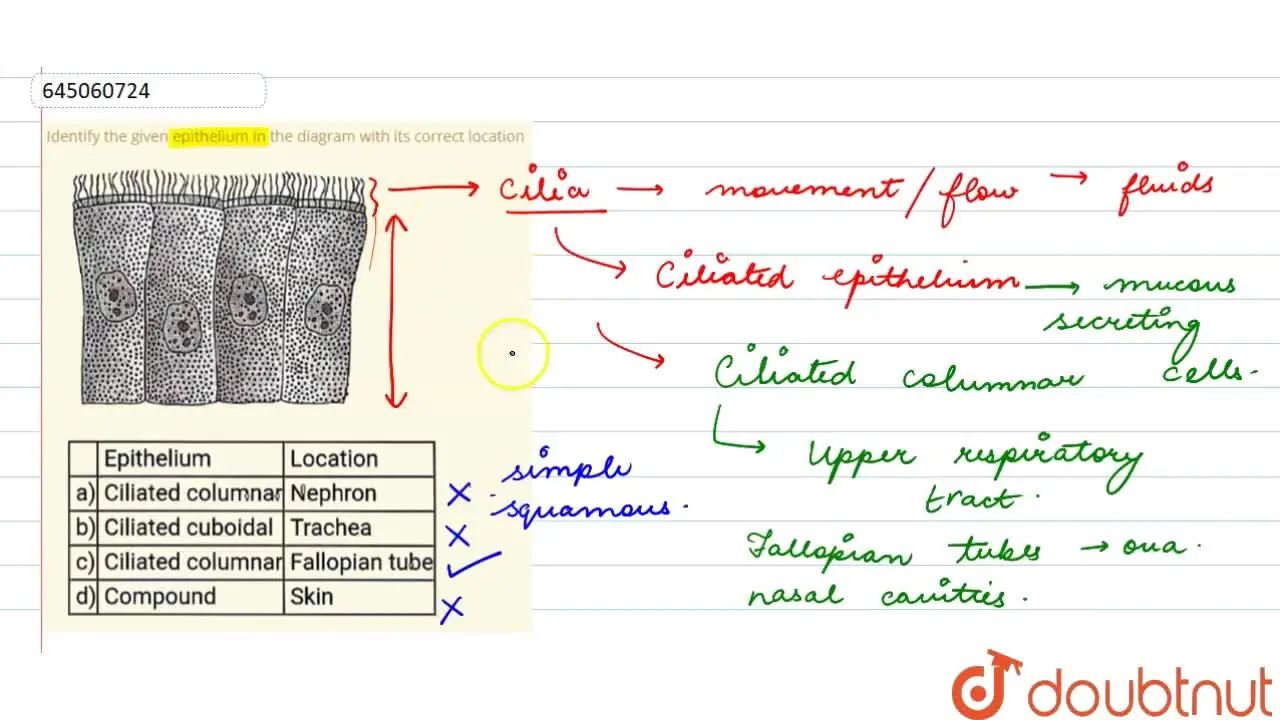 645060724
Identify the given epithelium in the diagram with its correct location
Cilia → movement / flow → fluids
Ciliated epithelium → mucous
secreting
Ciliated columnar cells.
Upper respiratory
tract.
Fallopian tubes → ova.
nasal cavities.
Epithelium Location
a) Ciliated columnar Nephron
b) Ciliated cuboidal Trachea
c) Ciliated columnar Fallopian tube
d) Compound Skin
simple
squamous.
doubtnut